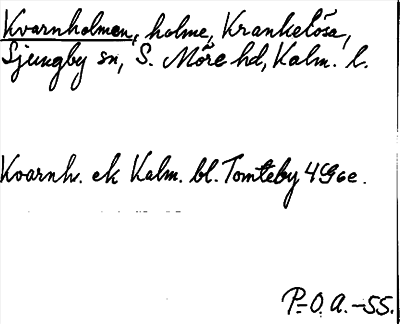 Kvarnholmen, holme, Krankelösa,
Ljungby sn, S. Möre hd, Kalm. l.
Kvarnh. ek Kalm. bl. Tomteby 4G6e.
P.-O. A. -55.